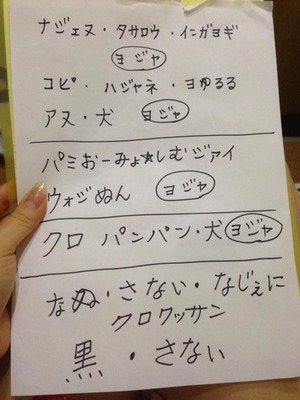 ナジェヌ・タサロウ・インガヨギ
ヨジャ
コピ・ハジャネ・ヨゆるる
アヌ・犬 ヨジャ
パミおーみょ★しむジァイ
ウォジぬん ヨジャ
クロ パンパン・犬 ヨジャ
なぬ・さない・なじぇに
クロワッサン
黒・さない